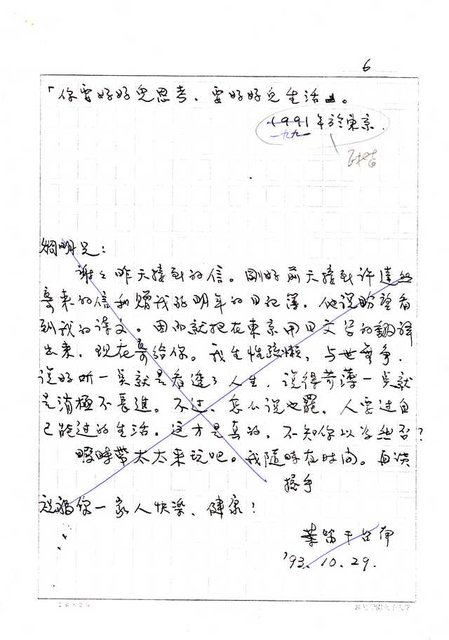 6
「你要好好兒思考、要好好兒生活」。
1991年於東京
一九九一
炯明兄：
謝々昨天接到的信。剛好前天接到許達然
寄來的信和贈我的明年的日記簿，他說盼望看
到我的譯文。因而就把在東京用日文写的翻譯
出來，現在寄給你。我生性疏懶，与世無爭，
說好听一奌就是看透了人生，說得苛薄一奌就
是消極不長進。不过，怎么說也罷，人要过自
己能过的生活，这才是真的，不知你以為然否？
暇時帶太太来玩吧。我随時在时间。再谈
握手
祝福你一家人快楽、健康！
葉笛于台南
'93.10.29.